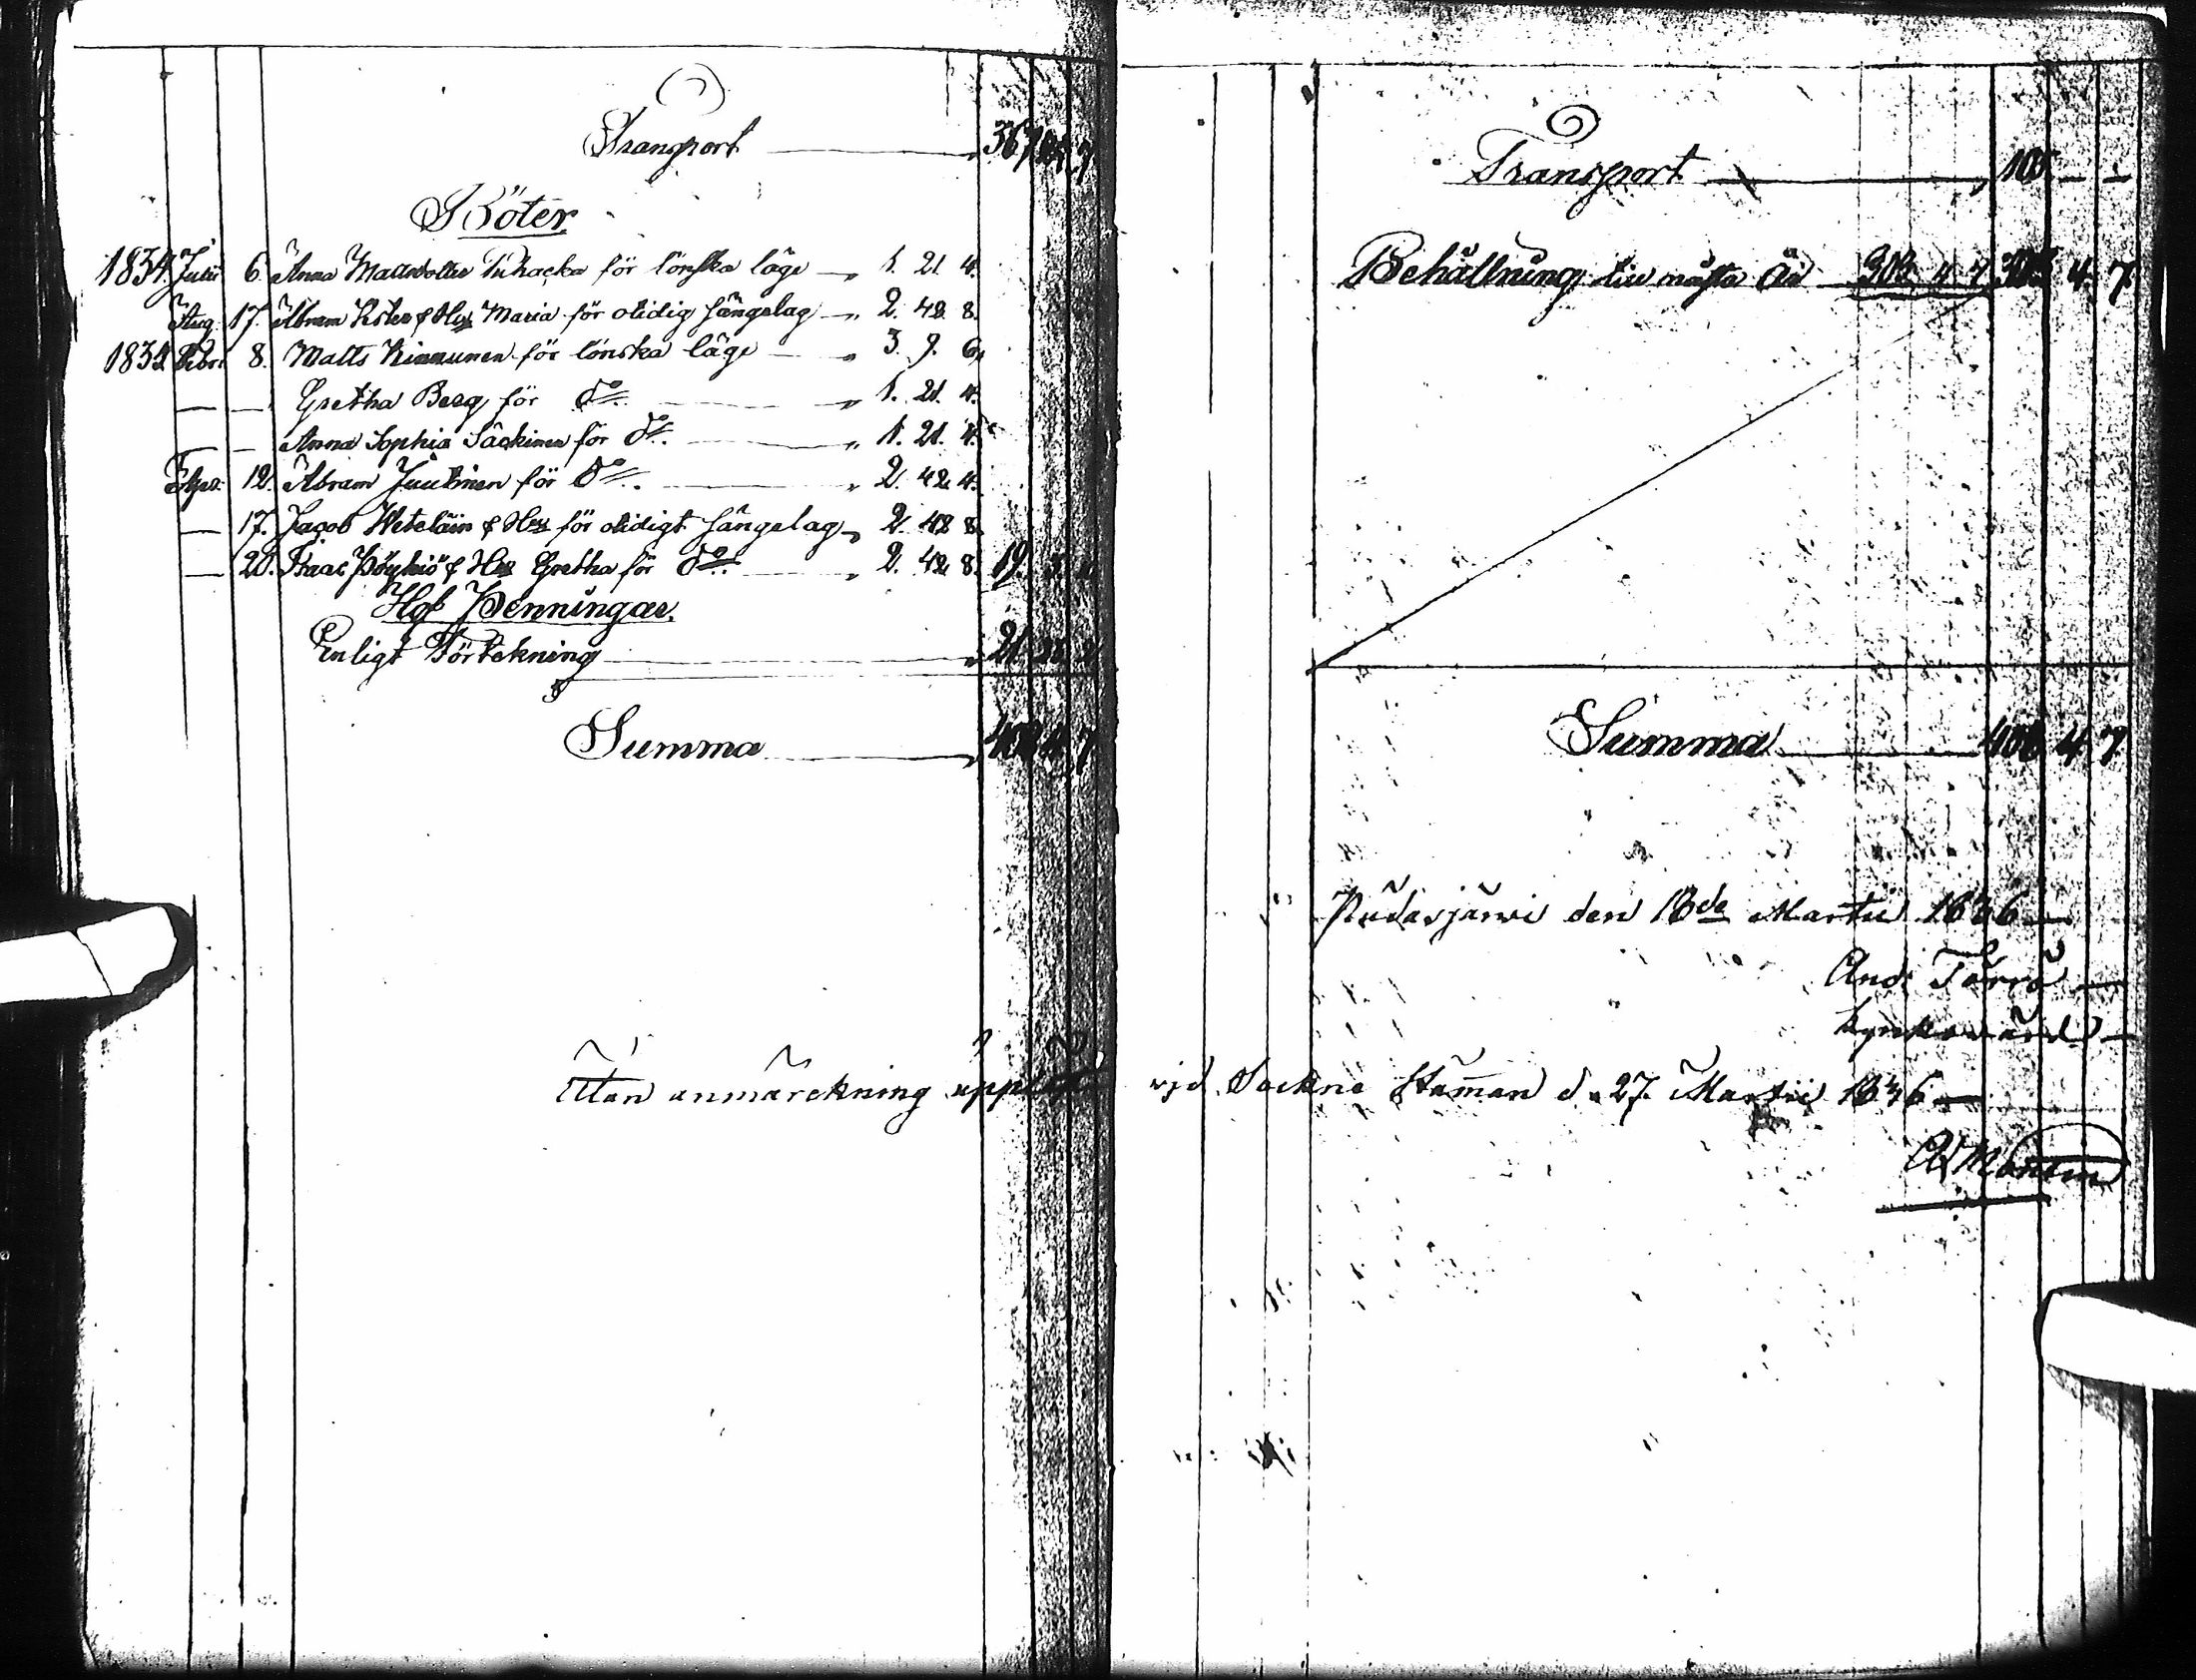 Transport 367
Böter
1834. Julii 6. Anna Mattsdotter för lönska läge 1. 21. 4.
Aug. 17. Abram & Hu Maria för otidig sängelag 2. 42. 8.
1835 Febr. 8. Matts Kinnunen för lönska läge 3. 9. 6
— — Gretha Berg för do 1. 21. 4.
— — Anna Sophia Säckinen för do 1. 21. 4.
12. Abram Juutinen för do 2. 42. 4.
— 17. Jacob Weteläin & Hu för otidigt sängelag 2. 42. 8.
— 20. Isaac Pöykiö & Hu Gretha för do 2. 42. 8. 19.
Hof Penningar.
Enligt Förtekning 21.
Summa 408 4 7
Transport 105 — —
Behållning till nästa År 303 4 7 303 4. 7.
Summa 408 4 7
Pudasjärvi den 18de Martii 1836
And: Törrö
Kyrkovärd
Utan anmärckning vid Sockne Stämman d. 27. Martii 1836